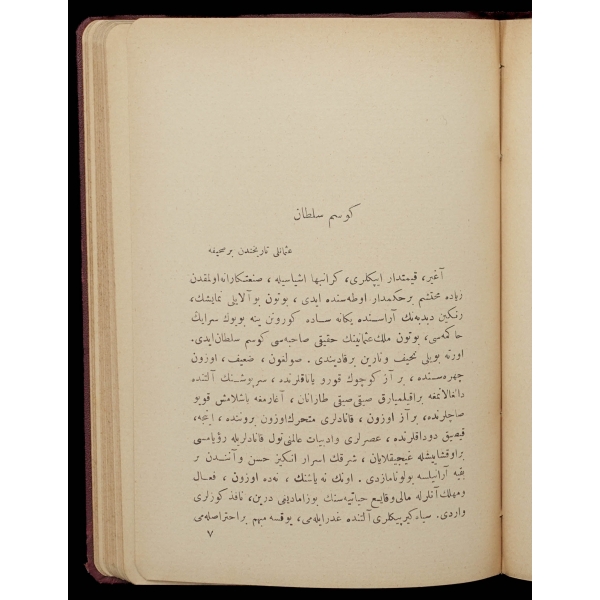 كوسم سلطان
عثمانلى تاريخندن برصحيفه
آغير، قيمتدار ايپكلرى، كرانبها اشياسيله، صنعتكارانه اولمقدن
زياده محتشم برحكمدار اوطه‌سنده ايدى، بوتون بو آلايلى نمايشك،
رنكين دبدبه‌نك آراسنده يكانه ساده كورونن ينه بويوك سرايك
حاكمه‌سى، بوتون ملك عثمانينك حقيقى صاحبه‌سى كوسم سلطان ايدى.
اورته بويلى نحيف ونارين برقاديندى. صولغون، ضعيف، اوزون
چهره‌سنده، بر آز كوچوك قورو ياناقلرنده، سرپوشنك آلتنده
دالغالانمغه براقيلميارق صيقى صيقى طارانان، آغارمغه باشلامش قويو
صاچلرنده، بر آز اوزون، قانادلرى متحرك اوزون بروننده، اينجه،
قيصيق دوداقلرنده، عصرلرى وادبيات عالمنى تول قانادلريله رؤياسى
براوقشاييشله غيجيقلايان، شرقك اسرار انكيز حسن وآنندن بر
بقيه آرانيلسه بولونامازدى. اونك نه ياشنك، نه‌ده اوزون، فعال
ومهلك آنلرله مالى وقايع حياتيه‌سنك بوزامادينى درين، نافذ كوزلرى
واردى. سياه كيرپيكلرى آلتنده غدرايله‌مى، يوقسه مبهم براحتراصله‌مى
٧